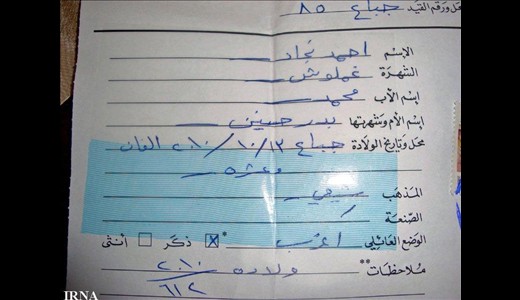 محل ورقم القيد جباع ٨٥
الإسم احمد نجاد
الشهرة غملوش
إسم الأب محمد
إسم الأم وشهرتها بدر حسين
محل وتاريخ الولادة جباع ١٣/١٠/٢٠١٠ الفان
وعشرة
المذهب شيعي
الصنعة
الوضع العائلي أعزب * ☒ ذكر ☐ أنثى
ملاحظات** ولادة ٢٠١٠
٦١٢
IRNA